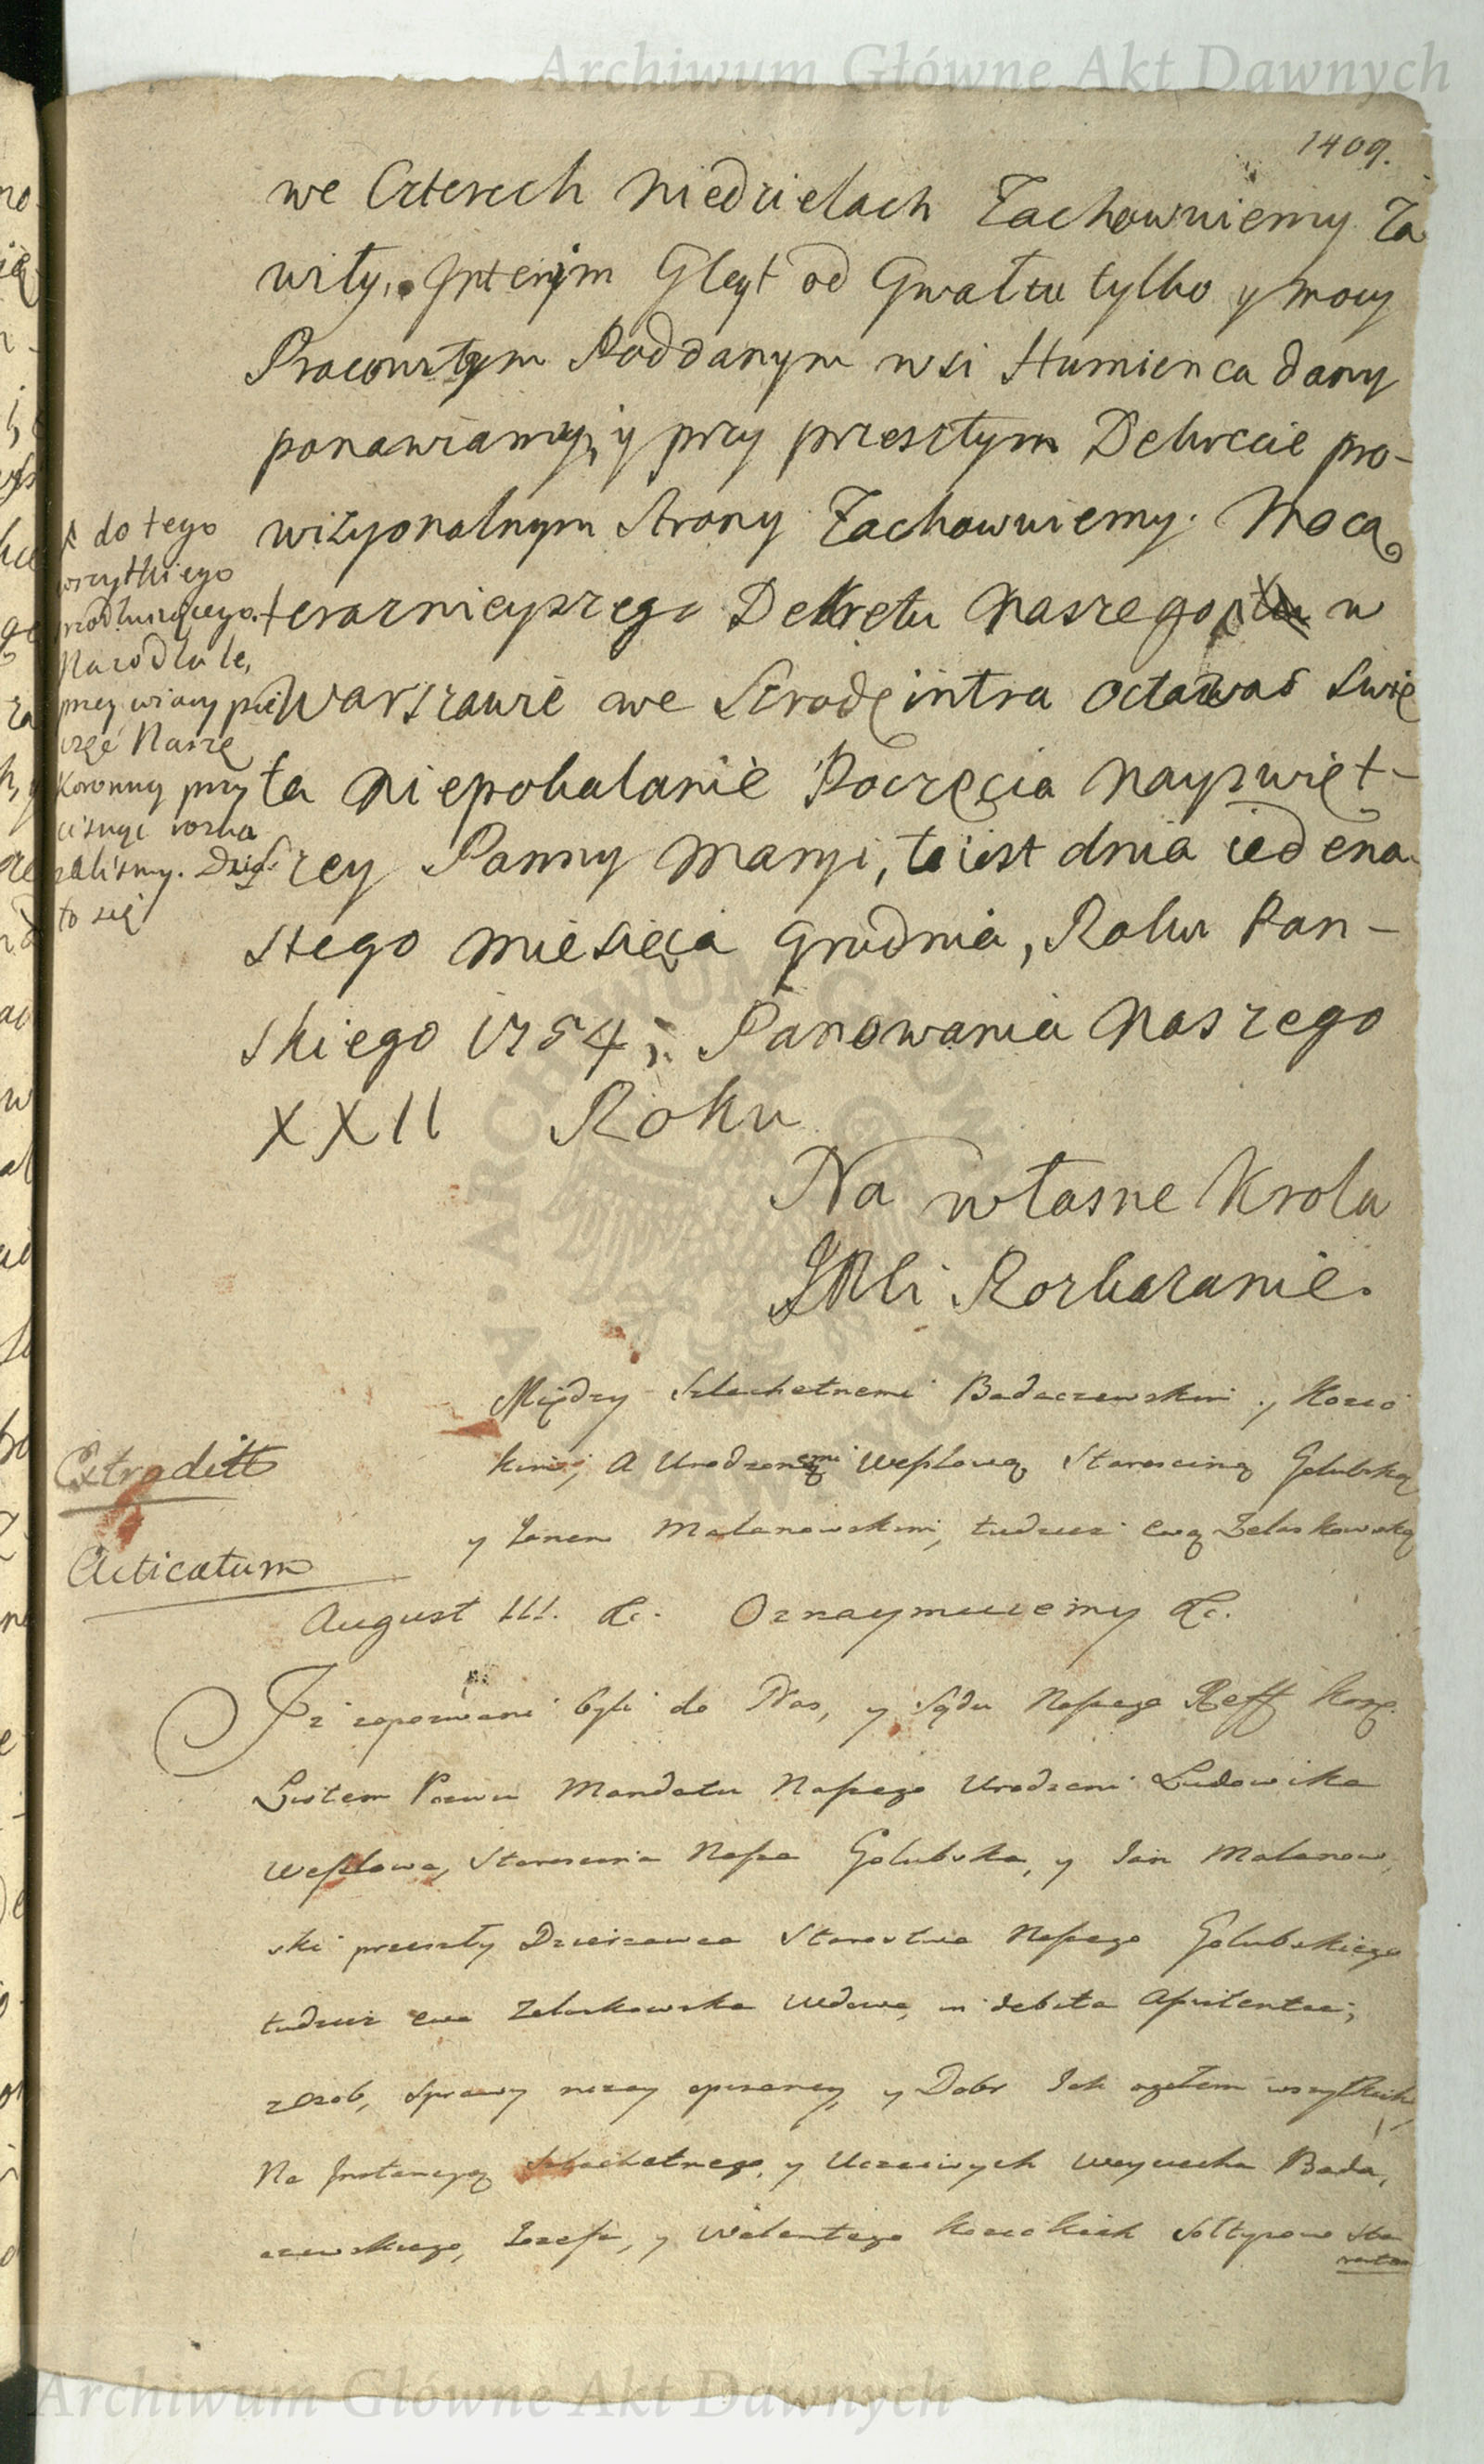 Archiwum Główne Akt Dawnych
1409.
we Czterech Niedzielach Zachowuiemy Za
wity, Interim Gleyt od Gwałtu tylko y mocy
Pracowitym Poddanym wsi Humienca dany
ponawiamy, y przy przeszłym Dekrecie pro-
wizyonalnym Strony Zachowuiemy. Mocą
teraznieyszego Dekretu Naszego w
Warszawie we Srzodę intra octavas Swię
ta Niepokalanie Poczęcia Nayswięt-
szey Panny Maryi, to iest dnia iedena
stego Miesięca Grudnia, Roku Pan-
skiego 1754; Panowania Naszego
XXII Roku
do tego
wszytkiego
Nazodla le,
przy wiary pie
częć Naszę
Koronną przy
cisnąć rozka
zalismy. Dział
to się
Na własne Krola
JMci Rozkazanie.
Między Szlachetnemi Badaczewskim, y Kozio
kimi, A Urodzonemi Weplową Starosciną Golubską
y Janem Malanowskim, tudziesz Ewą Zelaskowską
Extraditt
Acticatum
August III. &c. Oznaymuiemy &c.
Iz zapozwani byli do Nas, y Sądu Naszego Reff Kor.
Listem Pozwu Mandatu Naszego Urodzeni Ludowika
Weplowa, Staroscina Nasza Golubska, y Jan Malanow,
ski przeszły Dzierzawca Starostwa Naszego Golubskiego
tudziesz Ewa Zelaskowska Wdowa, in debita Assistentia;
z Osob, Sprawy nizey opisaney, y Dobr Ich ogołem wszytkich,
Na Instancyą Szlachetnego, y Uczciwych Woyciecha Bada,
czewskiego, Jozefa, y Walentego Koziokich Soltysow Sta
Archiwum Główne Akt Dawnych